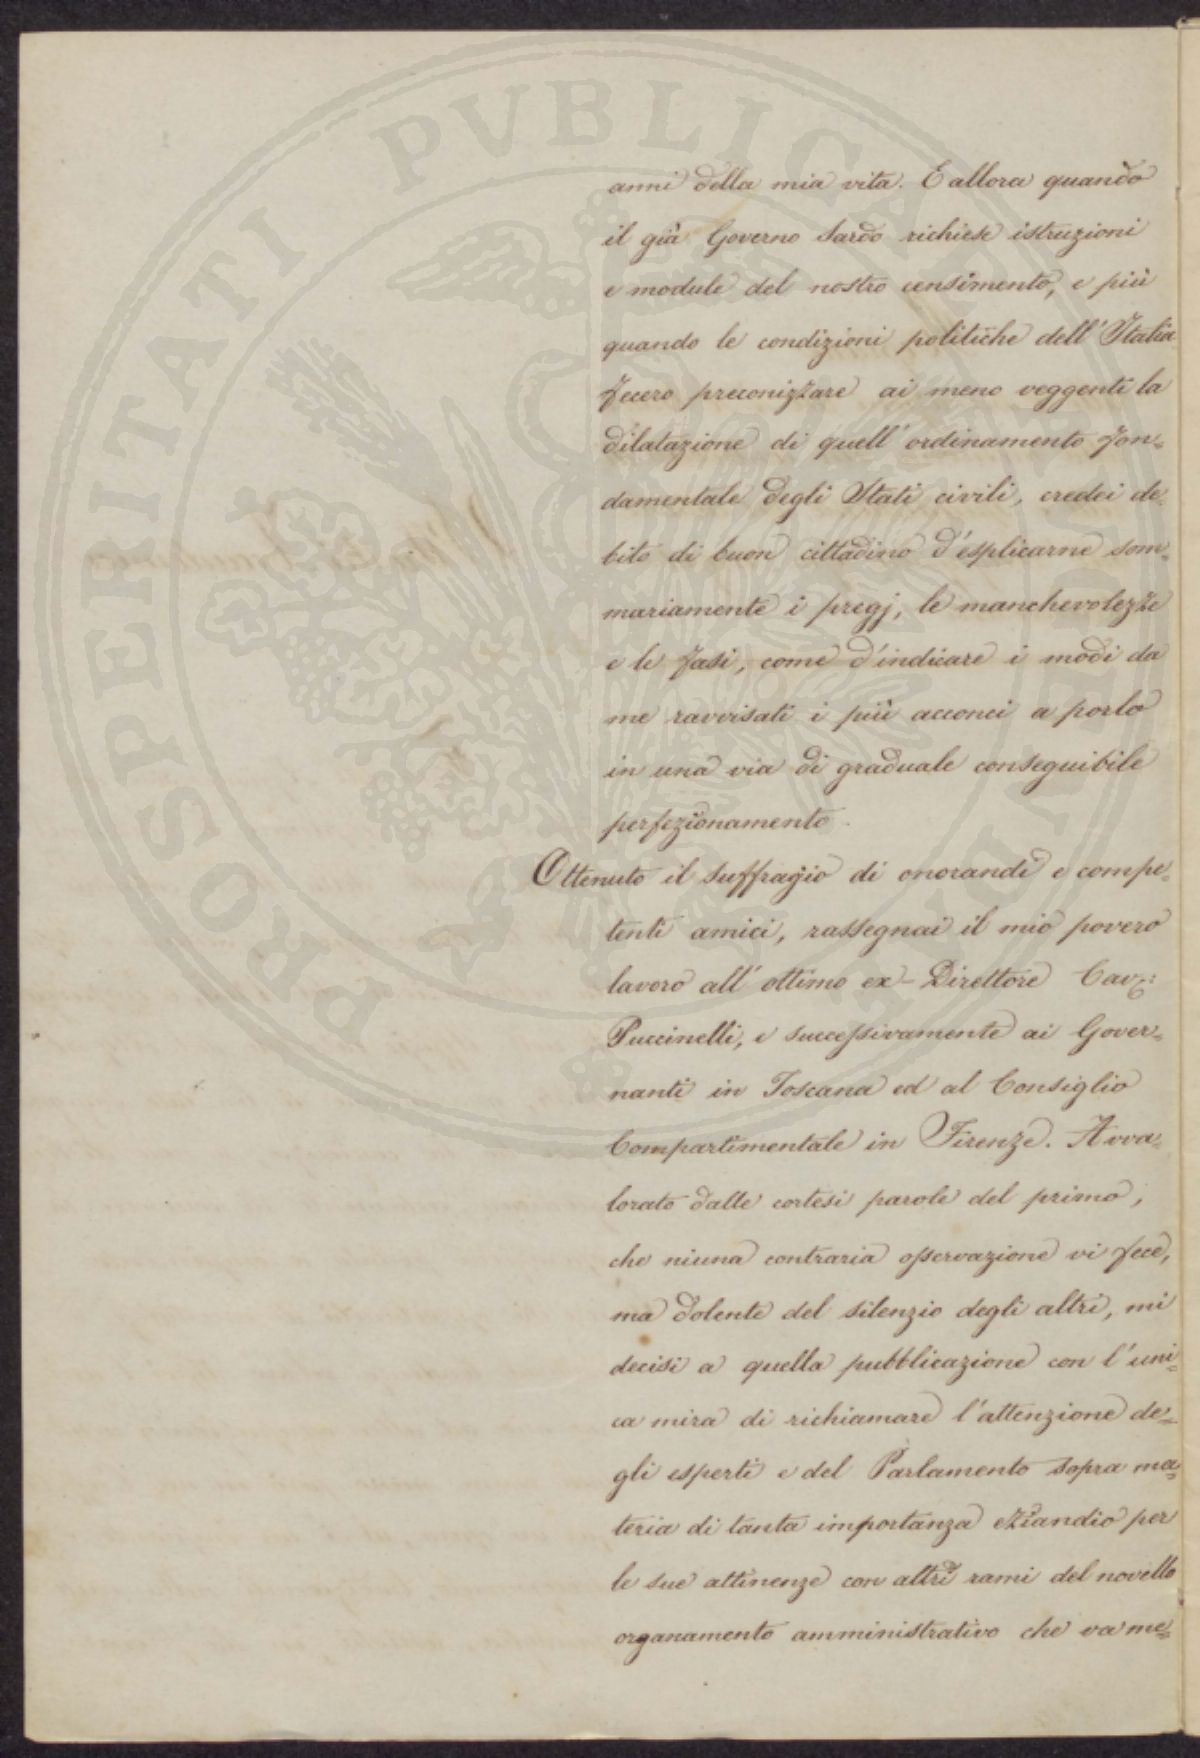 anni della mia vita. E allora quando
il già Governo Sardo richiese istruzioni
e module del nostro censimento, e più
quando le condizioni politiche dell'Italia
fecero preconizzare ai meno veggenti la
dilatazione di quell'ordinamento fon=
damentale degli Stati civili, credei de=
bito di buon cittadino d'esplicarne som=
mariamente i pregj, le manchevolezze
e le fasi, come d'indicare i modi da
me ravvisati i più acconci a porlo
in una via di graduale conseguibile
perfezionamento.
Ottenuto il suffragio di onorandi e compe=
tenti amici, rassegnai il mio povero
lavoro all'ottimo ex-Direttore Cav:
Puccinelli, e successivamente ai Gover=
nanti in Toscana ed al Consiglio
Compartimentale in Firenze. Avva=
lorato dalle cortesi parole del primo,
che niuna contraria osservazione vi fece,
ma dolente del silenzio degli altri, mi
decisi a quella pubblicazione con l'uni=
ca mira di richiamare l'attenzione de=
gli esperti e del Parlamento sopra ma=
teria di tanta importanza eziandio per
le sue attinenze con altri rami del novello
organamento amministrativo che va me=
PROSPERITATI PVBLICAE